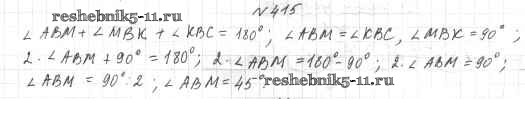 №415
www.reshebnik5-11.ru
∠ABM + ∠MBK + ∠KBC = 180°; ∠ABM = ∠KBC, ∠MBK = 90°;
2·∠ABM + 90° = 180°; 2·∠ABM = 180° - 90°; 2·∠ABM = 90°;
∠ABM = 90°:2; ∠ABM = 45°
reshebnik5-11.ru